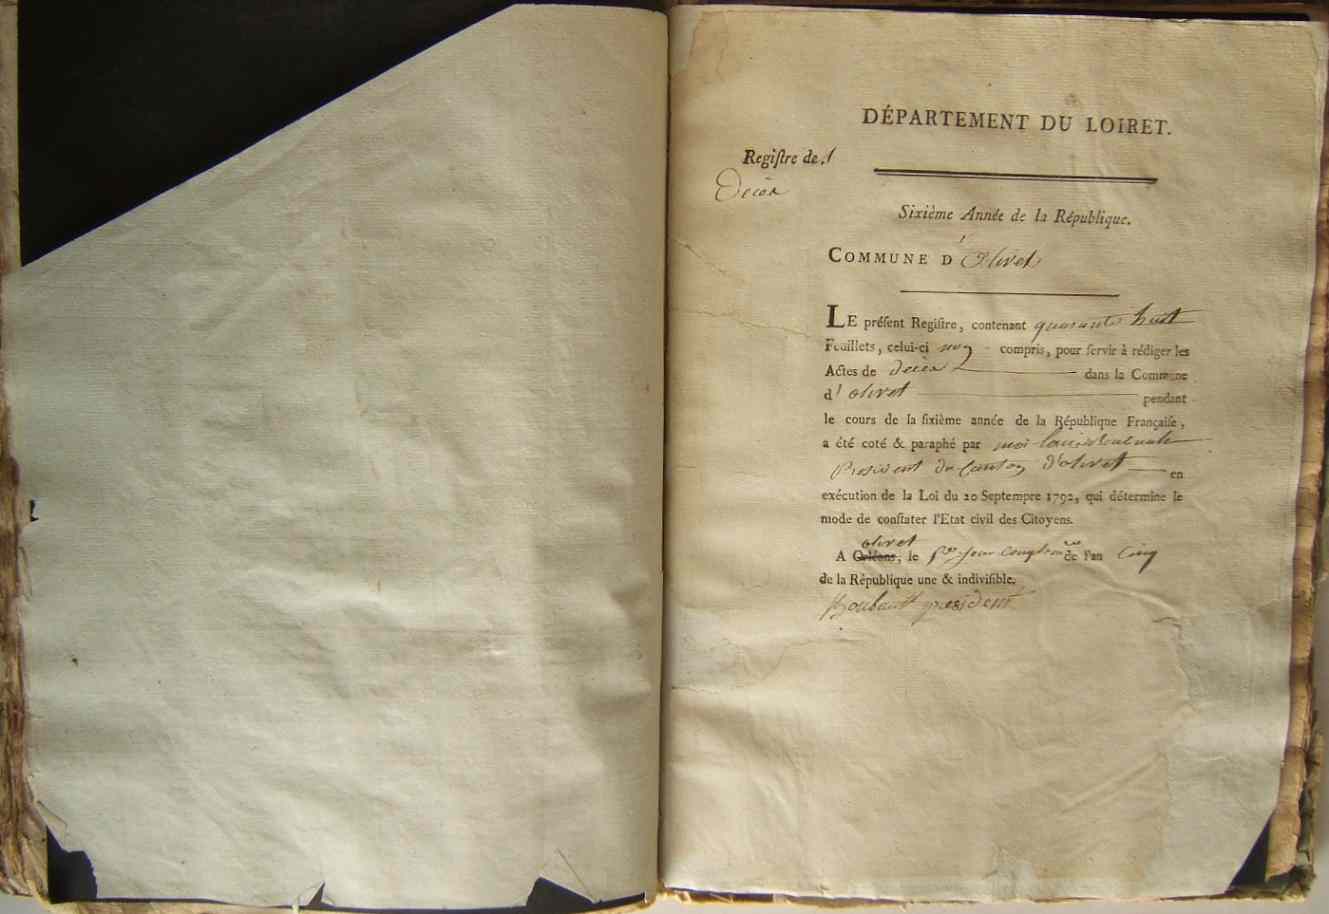 DÉPARTEMENT DU LOIRET.
Regiſtre de
Décès
Sixième Année de la République.
COMMUNE D'Olivet
LE préſent Regiſtre, contenant quarante huit
Feuillets, celui-ci non compris, pour ſervir à rédiger les
Actes de décès dans la Commune
d'olivet pendant
le cours de la ſixième année de la République Françaiſe,
a été coté & paraphé par moi
President du Canton d'olivet en
exécution de la Loi du 20 Septembre 1792, qui détermine le
mode de conſtater l'Etat civil des Citoyens.
olivet
A Orléans, le jour de l'an Cinq
de la République une & indiviſible.
president